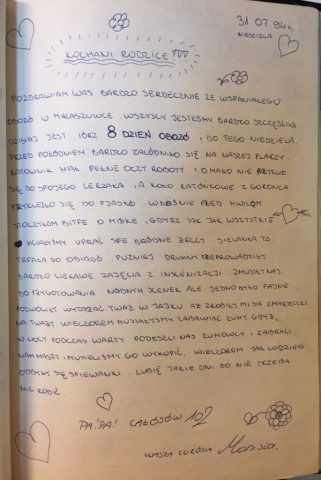 31.07.94r.
NIEDZIELA
KOCHANI RODZICE!!!
POZDRAWIAM WAS BARDZO SERDECZNIE ZE WSPANIAŁEGO
OBOZU W MIKASZÓWCE. WSZYSCY JESTEŚMY BARDZO SZCZĘŚLIWI
DZISIAJ JEST JUŻ 8 DZIEŃ OBOZU I DO TEGO NIEDZIELA.
PRZED POŁUDNIEM BARDZO ZALUDNIŁO SIĘ NA NASZEJ PLAŻY.
RATOWNIK MIAŁ PEŁNE OCZY ROBOTY I O MAŁO NIE
SIĘ DO SWOJEGO LEŻAKA, A KOŁO RATOWNIKOWE Z GORĄCA
PRZYKLEIŁO SIĘ DO PIASKU. WŁAŚNIE PRZED CHWILĄ
STOCZYŁAM BITFE O MISKE, GDYŻ TAK JAK WSZYSTKIE
CHCIAŁYŚMY UPRAĆ SFE BRUDNE ŻECZY. SIELANKA TA
TRFAŁA DO OBIADU. PUŹNIEJ DRUHNY PRZEPROWADZIŁY
BARDZO CIEKAWE ZAJĘCIA Z INSCENIZACJI. ZMUSIŁY NAS
DO PRZYGOTOWANIA NUDNYCH SCENEK ALE JEDNO BYŁO FAJNE
POZWOLIŁY WYTAŻAĆ TWAŻ W JAJKU AŻ ZROBIŁY MI SIĘ ZMARSZCZKI
NA TWAŻY. WIECZOREM MUSIAŁYŚMY ZABAWIAĆ ZUHY GDYŻ,
W NOCY PODCZAS WARTY PODESZLI NAS ZUHOWCY I ZABRALI
NAM MASZT I MUSIELIŚMY GO WYKUPIĆ. WIECZOREM JAK CODZIEŃ
ODBYŁY SIĘ ŚPIEWANKI. LUBIĘ TAKIE DNI BO NIE TRZEBA
NIC ROBIĆ.
PA! PA! CAŁUSÓW 102
WASZA CURUSIA Monisia.